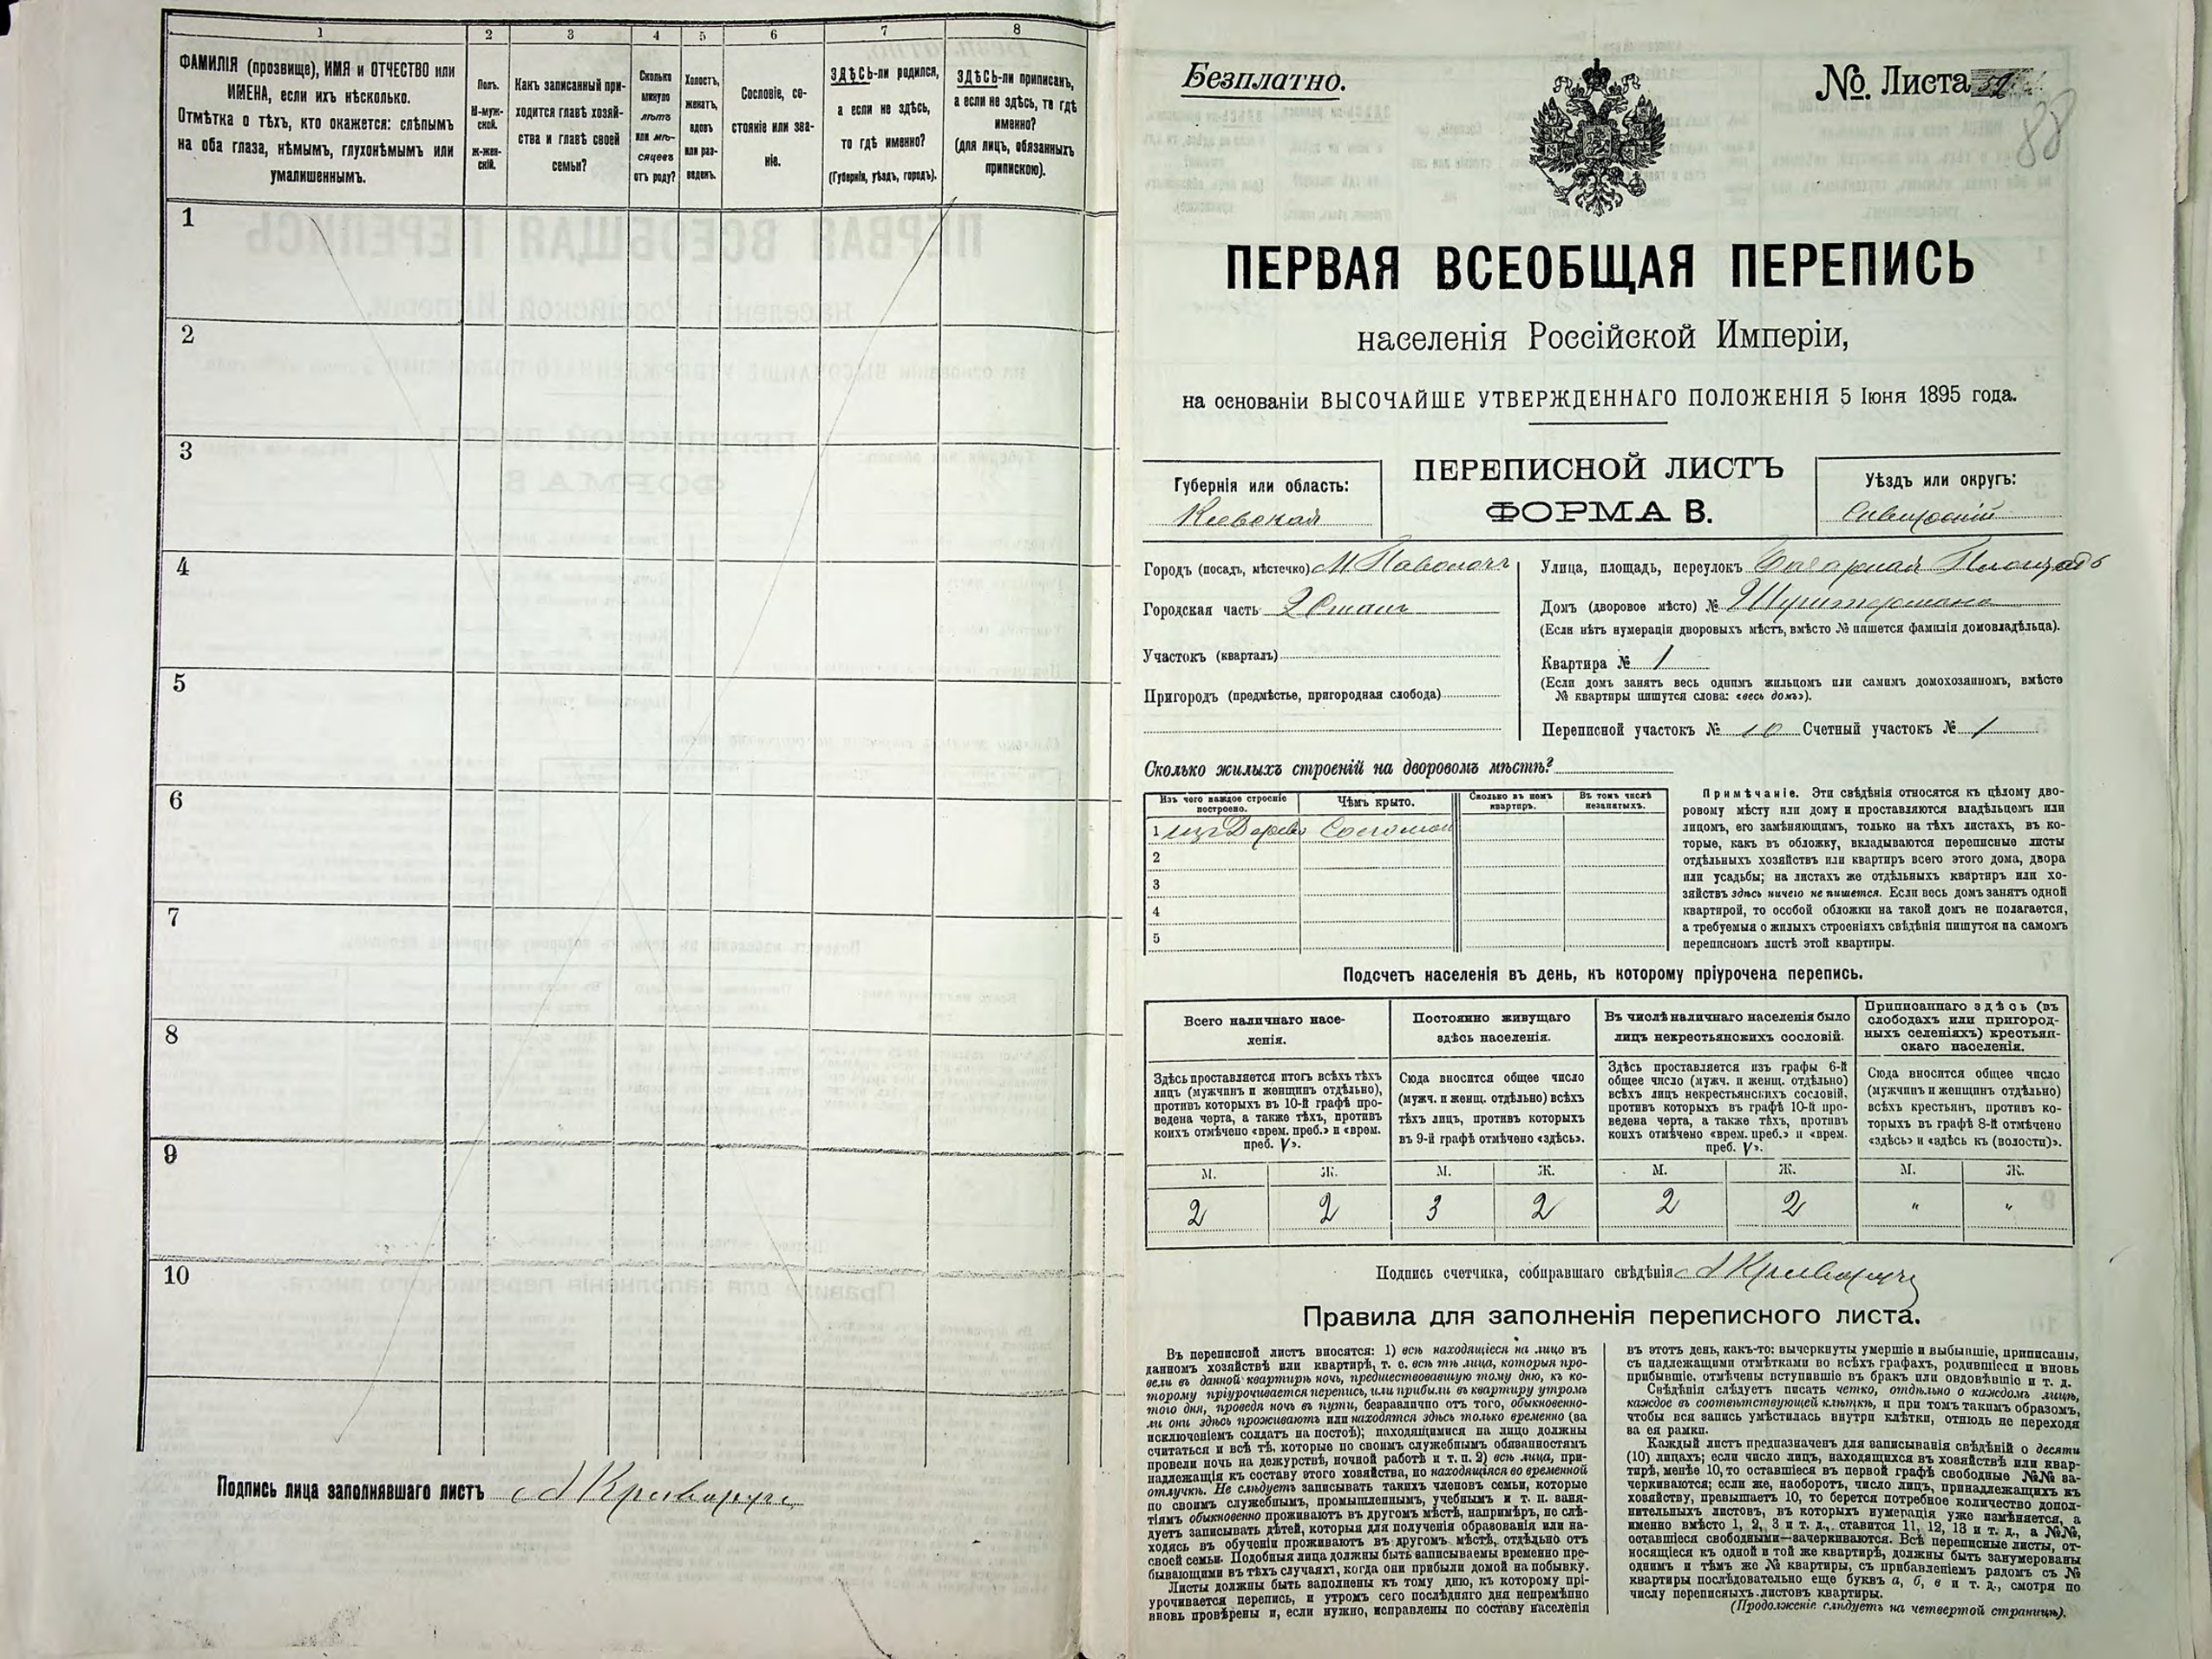 1
2
3
4
5
6
7
8
ФАМИЛІЯ (прозвище), ИМЯ и ОТЧЕСТВО или
ИМЕНА, если ихъ нѣсколько.
Отмѣтка о тѣхъ, кто окажется: слѣпымъ
на оба глаза, нѣмымъ, глухонѣмымъ или
умалишеннымъ.
Полъ.
М-муж-
ской.
Ж-жен-
скій.
Какъ записанный при-
ходится главѣ хозяй-
ства и главѣ своей
семьи?
Сколько
минуло
лѣтъ
или мѣ-
сяцевъ
отъ роду?
Холостъ,
женатъ,
вдовъ
или раз-
веденъ.
Сословіе, со-
стояніе или зва-
ніе.
ЗДѢСЬ-ли родился,
а если не здѣсь,
то гдѣ именно?
(Губернія, уѣздъ, городъ).
ЗДѢСЬ-ли приписанъ,
а если не здѣсь, то гдѣ
именно?
(для лицъ, обязанныхъ
припискою).
1
2
3
4
5
6
7
8
9
10
Подпись лица заполнявшаго листъ
Безплатно.
№ Листа 52
88
ПЕРВАЯ ВСЕОБЩАЯ ПЕРЕПИСЬ
населенія Россійской Имперіи,
на основаніи ВЫСОЧАЙШЕ УТВЕРЖДЕННАГО ПОЛОЖЕНІЯ 5 Іюня 1895 года.
Губернія или область:
Кіевская
ПЕРЕПИСНОЙ ЛИСТЪ
ФОРМА В.
Уѣздъ или округъ:
Сквирскій
Городъ (посадъ, мѣстечко) М Паволочь
Городская часть 2 Станъ
Участокъ (кварталъ)
Пригородъ (предмѣстье, пригородная слобода)
Улица, площадь, переулокъ Базарная Площадь
Домъ (дворовое мѣсто) №
(Если нѣтъ нумераціи дворовыхъ мѣстъ, вмѣсто № пишется фамилія домовладѣльца).
Квартира № 1
(Если домъ занятъ весь однимъ жильцомъ или самимъ домохозяиномъ, вмѣсто
№ квартиры пишутся слова: «весь домъ»).
Переписной участокъ № 10 Счетный участокъ № 1
Сколько жилыхъ строеній на дворовомъ мѣстѣ?
Изъ чего каждое строеніе
построено.
Чѣмъ крыто.
Сколько въ немъ
квартиръ.
Въ томъ числѣ
незанятыхъ.
1 изъ Дерева Соломой
2
3
4
5
Примѣчаніе. Эти свѣдѣнія относятся къ цѣлому дво-
ровому мѣсту или дому и проставляются владѣльцемъ или
лицомъ, его замѣняющимъ, только на тѣхъ листахъ, въ ко-
торые, какъ въ обложку, вкладываются переписные листы
отдѣльныхъ хозяйствъ или квартиръ всего этого дома, двора
или усадьбы; на листахъ же отдѣльныхъ квартиръ или хо-
зяйствъ здѣсь ничего не пишется. Если весь домъ занятъ одной
квартирой, то особой обложки на такой домъ не полагается,
а требуемыя о жилыхъ строеніяхъ свѣдѣнія пишутся на самомъ
переписномъ листѣ этой квартиры.
Подсчетъ населенія въ день, къ которому пріурочена перепись.
Всего наличнаго насе-
ленія.
Здѣсь проставляется итогъ всѣхъ тѣхъ
лицъ (мужчинъ и женщинъ отдѣльно),
противъ которыхъ въ 10-й графѣ про-
ведена черта, а также тѣхъ, противъ
коихъ отмѣчено «врем. преб.» и «врем.
преб. V».
Постоянно живущаго
здѣсь населенія.
Сюда вносится общее число
(мужч. и женщ. отдѣльно) всѣхъ
тѣхъ лицъ, противъ которыхъ
въ 9-й графѣ отмѣчено «здѣсь».
Въ числѣ наличнаго населенія было
лицъ некрестьянскихъ сословій.
Здѣсь проставляется изъ графы 6-й
общее число (мужч. и женщ. отдѣльно)
всѣхъ лицъ некрестьянскихъ сословій,
противъ которыхъ въ графѣ 10-й про-
ведена черта, а также тѣхъ, противъ
коихъ отмѣчено «врем. преб.» и «врем.
преб. V».
Приписаннаго здѣсь (въ
слободахъ или пригород-
ныхъ селеніяхъ) крестьян-
скаго населенія.
Сюда вносится общее число
(мужчинъ и женщинъ отдѣльно)
всѣхъ крестьян, противъ ко-
торыхъ въ графѣ 8-й отмѣчено
«здѣсь» и «здѣсь къ (волости)».
М. Ж. М. Ж. М. Ж. М. Ж.
2 2 3 2 2 2 " "
Подпись счетчика, собиравшаго свѣдѣнія
Правила для заполненія переписного листа.
Въ переписной листъ вносятся: 1) всѣ находящіеся на лицо въ
данномъ хозяйствѣ или квартирѣ, т. е. всѣ тѣ лица, которыя про-
вели въ данной квартирѣ ночь, предшествовавшую тому дню, къ ко-
торому пріурочивается перепись, или прибыли въ квартиру утромъ
того дня, проведя ночь въ пути, безразлично отъ того, обыкновенно-
ли они здѣсь проживаютъ или находятся здѣсь только временно (за
исключеніемъ солдатъ на постоѣ); находящимися на лицо должны
считаться и всѣ тѣ, которые по своимъ служебнымъ обязанностямъ
провели ночь на дежурствѣ, ночной работѣ и т. п. 2) всѣ лица, при-
надлежащія къ составу этого хозяйства, но находящіяся во временной
отлучкѣ. Не слѣдуетъ записывать такихъ членовъ семьи, которые
по своимъ служебнымъ, промышленнымъ, учебнымъ и т. п. заня-
тіямъ обыкновенно проживаютъ въ другомъ мѣстѣ, напримѣръ, не слѣ-
дуетъ записывать дѣтей, которыя для полученія образованія или на-
ходясь въ обученіи проживаютъ въ другомъ мѣстѣ, отдѣльно отъ
своей семьи. Подобныя лица должны быть записываемы временно пре-
бывающими въ тѣхъ случаяхъ, когда они прибыли домой на побывку.
Листы должны быть заполнены къ тому дню, къ которому прі-
урочивается перепись, и утромъ сего послѣдняго дня непремѣнно
вновь провѣрены и, если нужно, исправлены по составу населенія
въ этотъ день, какъ-то: вычеркнуты умершіе и выбывшіе, приписаны,
съ надлежащими отмѣтками во всѣхъ графахъ, родившіеся и вновь
прибывшіе, отмѣчены вступившіе въ бракъ или овдовѣвшіе и т. д.
Свѣдѣнія слѣдуетъ писать четко, отдѣльно о каждомъ лицѣ,
каждое въ соотвѣтствующей клѣткѣ, и при томъ такимъ образомъ,
чтобы вся запись умѣстилась внутри клѣтки, отнюдь не переходя
за ея рамки.
Каждый листъ предназначенъ для записыванія свѣдѣній о десяти
(10) лицахъ; если число лицъ, находящихся въ хозяйствѣ или квар-
тирѣ, менѣе 10, то оставшіеся въ первой графѣ свободные №№ за-
черкиваются; если же, наоборотъ, число лицъ, принадлежащихъ къ
хозяйству, превышаетъ 10, то берется потребное количество допол-
нительныхъ листовъ, въ которыхъ нумерація уже измѣняется, а
именно вмѣсто 1, 2, 3 и т. д., ставится 11, 12, 13 и т. д., а №№,
оставшіеся свободными—зачеркиваются. Всѣ переписные листы, от-
носящіеся къ одной и той же квартирѣ, должны быть занумерованы
однимъ и тѣмъ же № квартиры, съ прибавленіемъ рядомъ съ №
квартиры послѣдовательно еще буквъ а, б, в и т. д., смотря по
числу переписныхъ листовъ квартиры.
(Продолженіе слѣдуетъ на четвертой страницѣ).